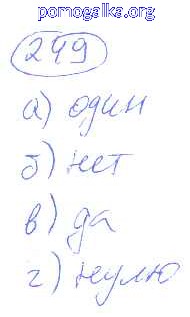 pomogalka.org
249
а) один
б) нет
в) да
г) нулю